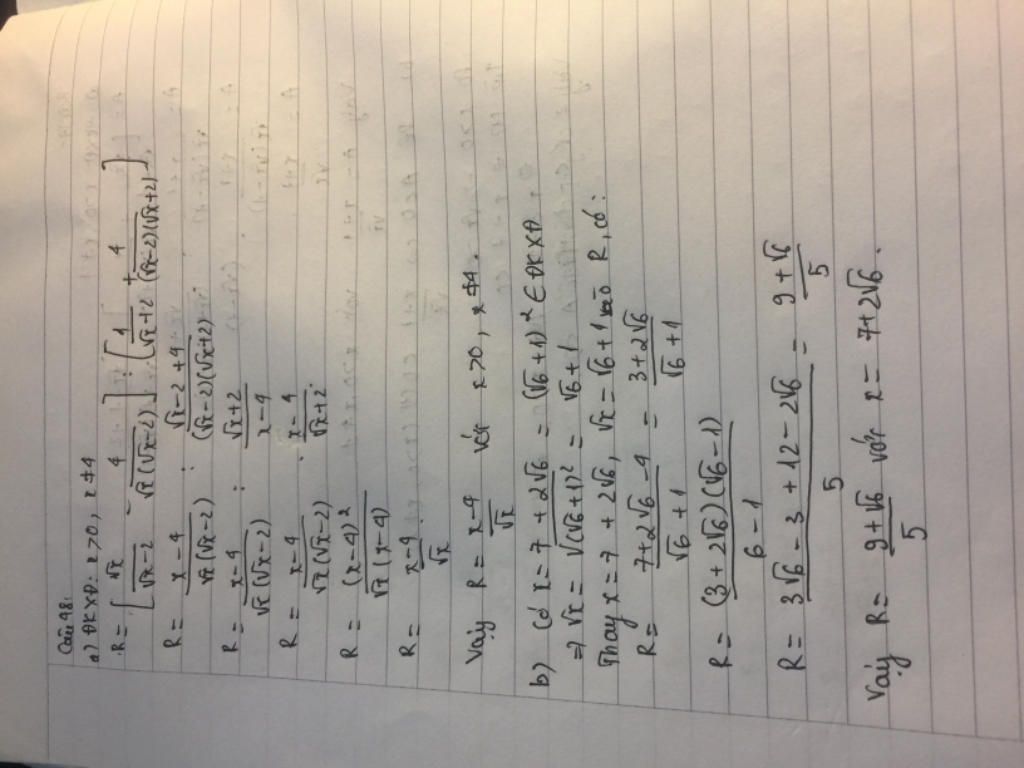 Câu 48:
a) ĐKXĐ: x > 0, x ≠ 4
R = [√x/(√x-2) - 4/(√x(√x-2))] : [1/(√x+2) + 4/((√x-2)(√x+2))].
R = (x-4)/(√x(√x-2)) : (√x-2+4)/((√x-2)(√x+2))
R = (x-4)/(√x(√x-2)) : (√x+2)/(x-4)
R = (x-4)/(√x(√x-2)) . (x-4)/(√x+2).
R = (x-4)²/(√x(x-4))
R = (x-4)/√x.
Vậy R = (x-4)/√x với x>0, x ≠ 4.
b) Có x = 7 + 2√6 = (√6+1)² ∈ ĐKXĐ.
=> √x = √((√6+1)²) = √6+1
Thay x = 7 + 2√6, √x = √6+1 vào R, có:
R = (7+2√6-4)/(√6+1) = (3+2√6)/(√6+1)
R = ((3+2√6)(√6-1))/(6-1)
R = (3√6-3+12-2√6)/5 = (9+√6)/5
Vậy R = (9+√6)/5 với x = 7+2√6.